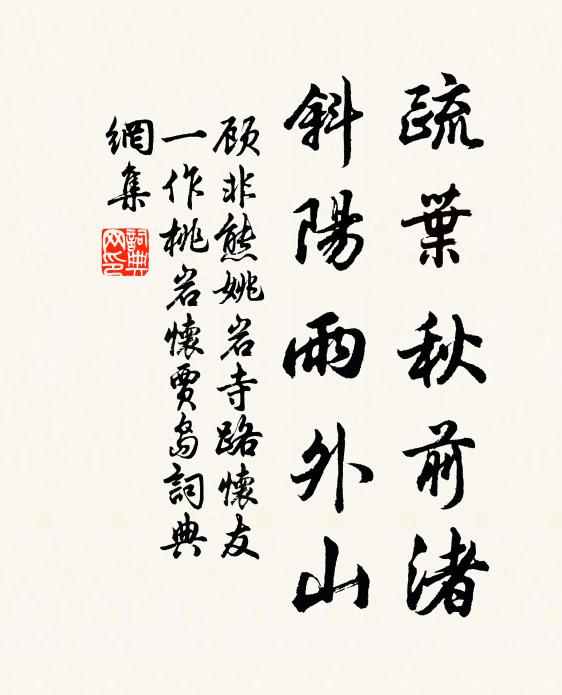 疏葉秋前渚
斜陽雨外山
顾非熊姚岩寺路懷友
一作桃岩懷賈島詞典
網集
詞典
网印